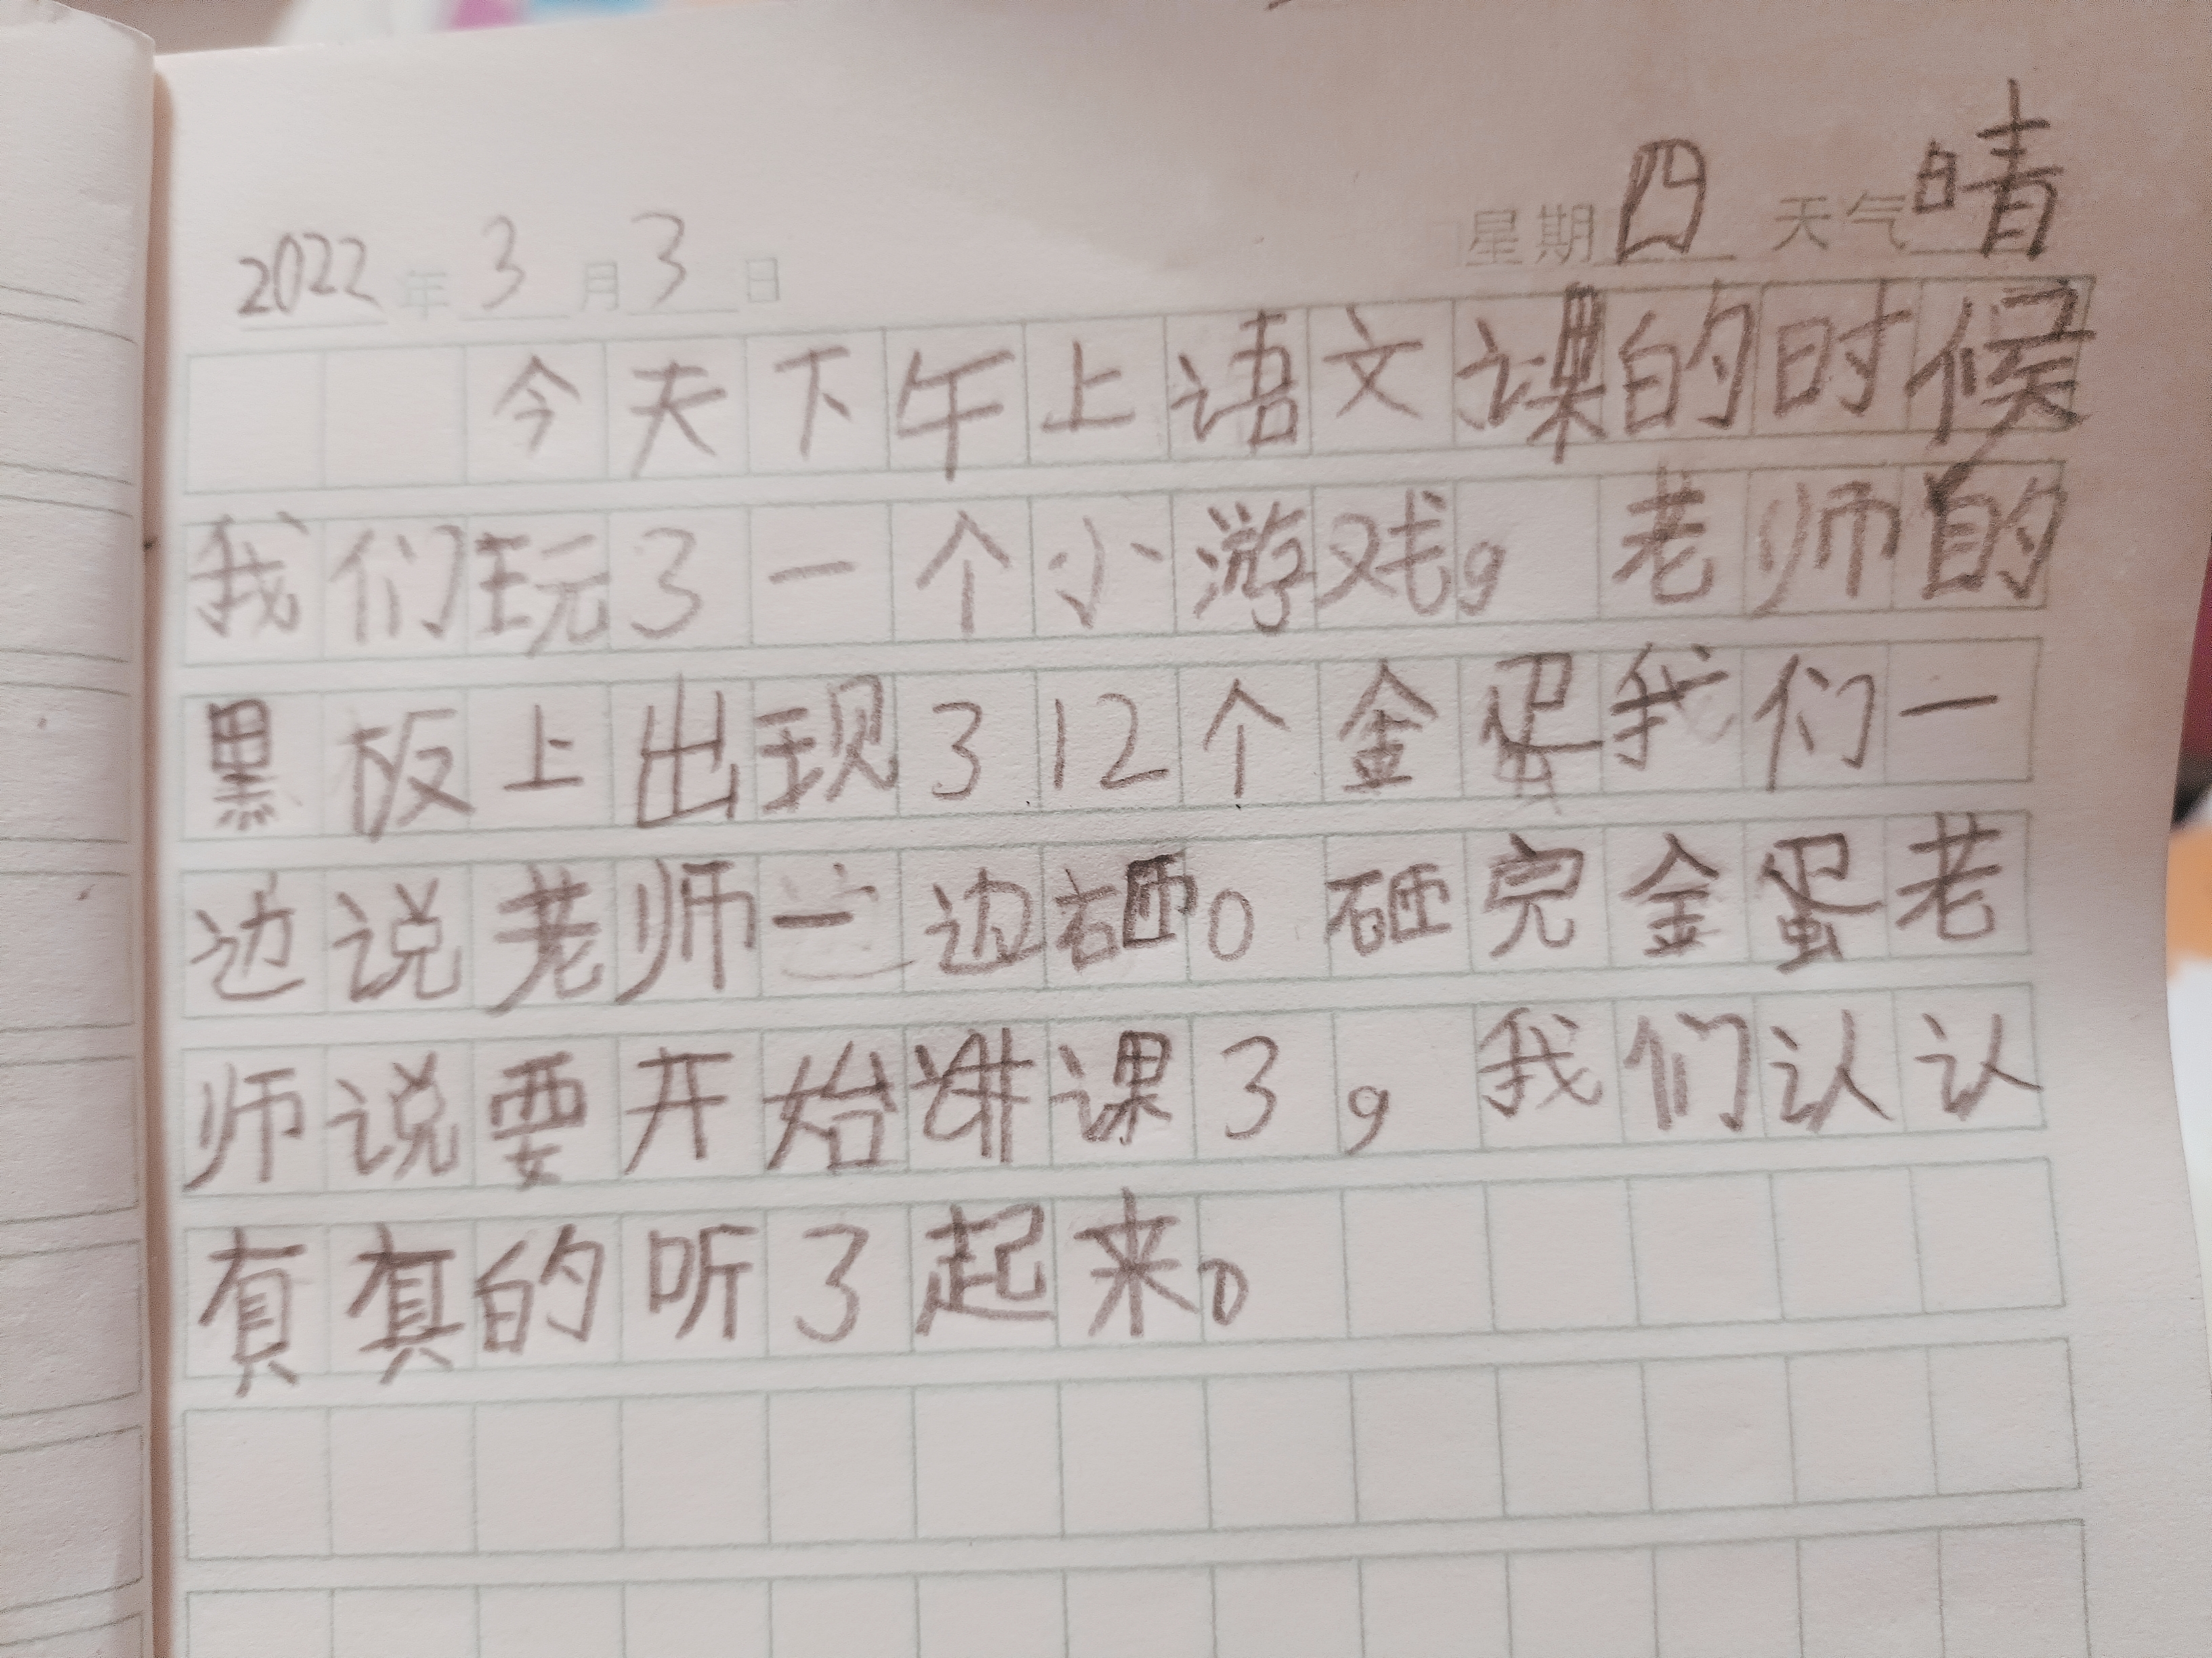 2022年3月3日 星期四 天气晴
今天下午上语文课的时候
我们玩了一个小游戏，老师的
黑板上出现了12个金蛋我们一
边说老师一边砸。砸完金蛋老
师说要开始讲课了，我们认认
真真的听了起来。